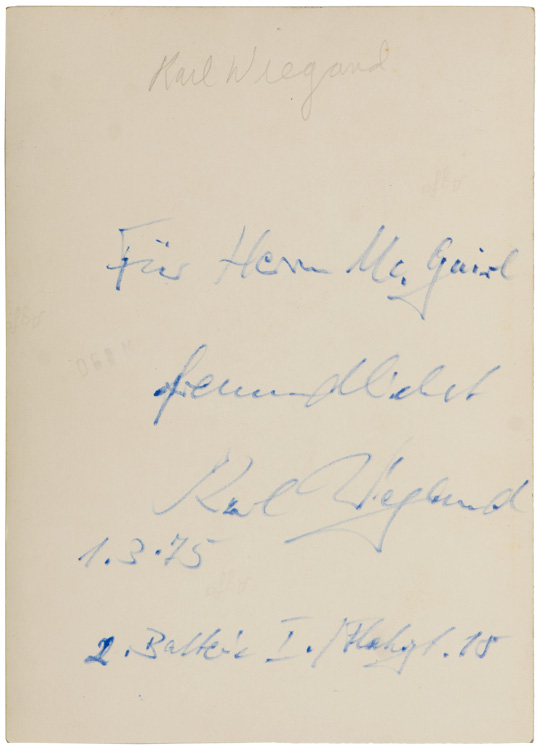 Karl Wiegand
Für Herrn Mc. Guirl
freundlichst
Karl Wiegand
1.3.75
2. Batterie I./Flakrgt. 18